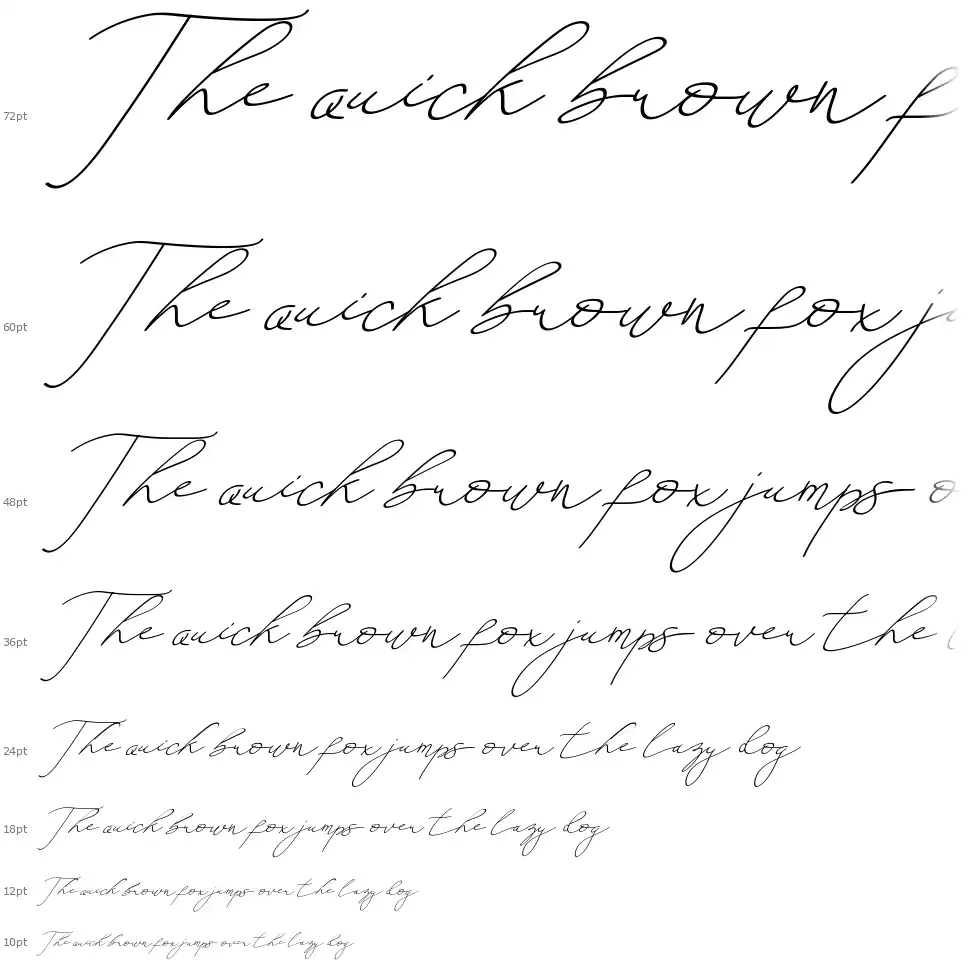 72pt The quick brown f
60pt The quick brown fox j
48pt The quick brown fox jumps o
36pt The quick brown fox jumps over the l
24pt The quick brown fox jumps over the lazy dog
18pt The quick brown fox jumps over the lazy dog
12pt The quick brown fox jumps over the lazy dog
10pt The quick brown fox jumps over the lazy dog